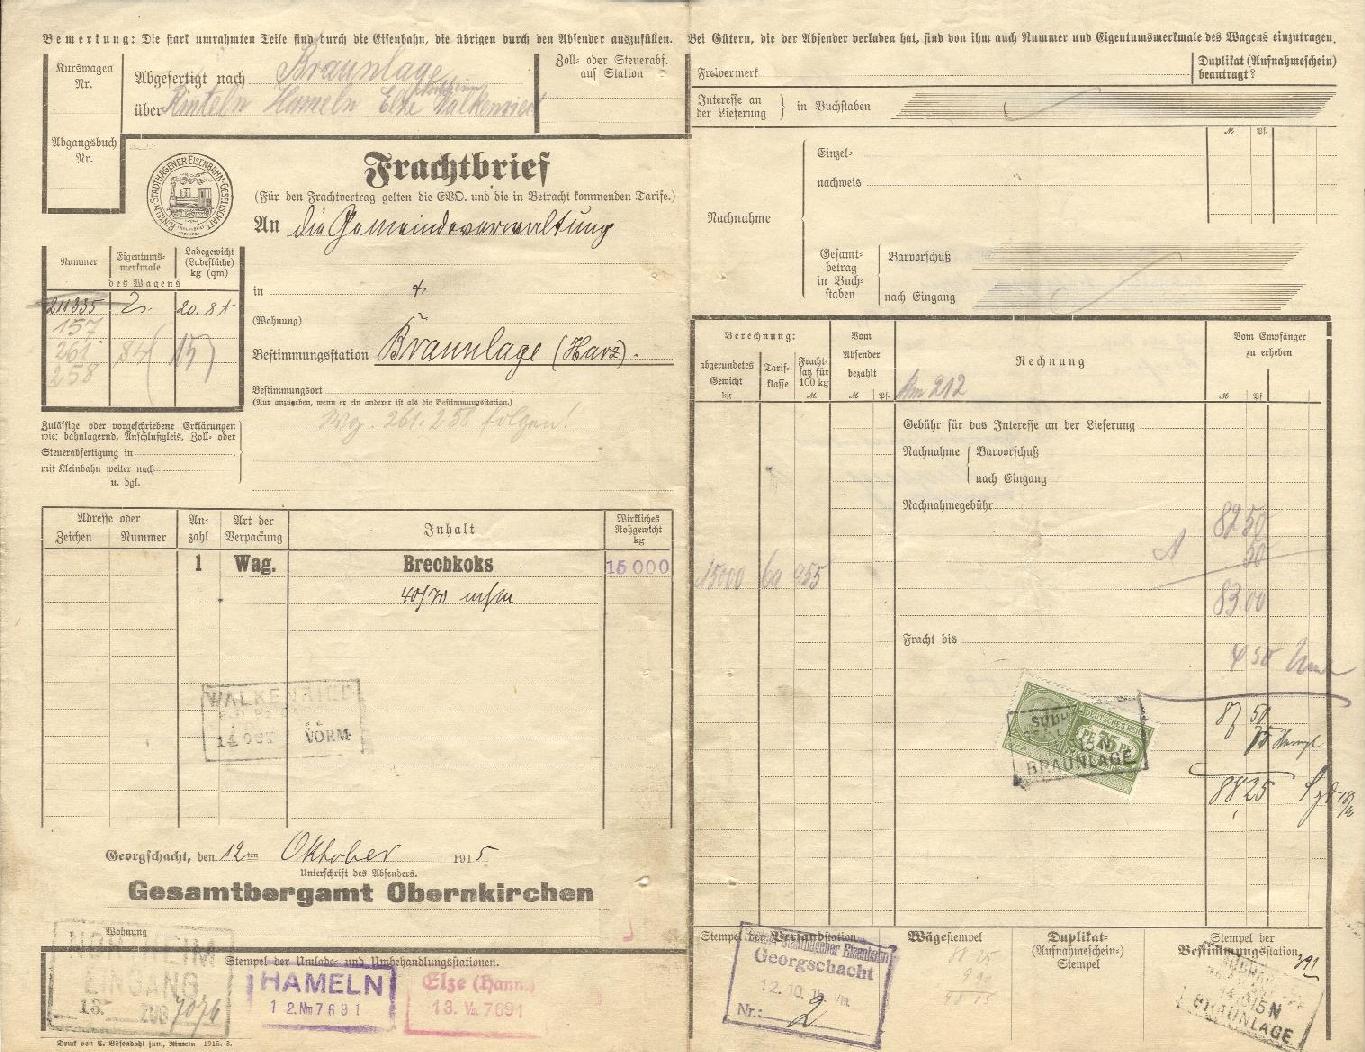 Bemerkung: Die stark umrahmten Teile sind durch die Eisenbahn, die übrigen durch den Absender auszufüllen.
Bei Gütern, die der Absender verladen hat, sind von ihm auch Nummer und Eigentumsmerkmale des Wagens einzutragen.
Kurswagen
Nr.
Abgefertigt nach Braunlage
über Rinteln Hameln Elze Walkenried
Zoll- oder Steuerabf.
auf Station
Abgangsbuch
Nr.
Freivermerk
Duplikat (Aufnahmeschein)
beantragt?
Interesse an
der Lieferung
in Buchstaben
RINTELN-STADTHAGENER EISENBAHN-GESELLSCHAFT
Frachtbrief
(Für den Frachtvertrag gelten die EVO. und die in Betracht kommenden Tarife.)
An die Gemeindeverwaltung
in
(Wohnung)
Bestimmungsstation Braunlage (Harz).
Bestimmungsort
(Nur anzugeben, wenn er ein anderer ist als die Bestimmungsstation.)
Wg. 261. 258 folgen!
Nummer
Eigentums-
merkmale
Ladegewicht
(Ladefläche)
kg (qm)
des Wagens
157
261
258
Zusätze oder vorgeschriebene Erklärungen
wie: bahnlagernd, Anschlußgleis, Zoll- oder
Steuerabfertigung in
mit Kleinbahn weiter nach
u. dgl.
M. Pf.
Nachnahme
Einzel-
nachweis
Gesamt-
betrag
in Buch-
staben
Barvorschuß
nach Eingang
Berechnung:
abgerundetes
Gewicht
kg
Tarif-
klasse
Fracht-
satz für
100 kg
M
Vom
Absender
bezahlt
M Pf.
Rechnung
Km 212
Vom Empfänger
zu erheben
M Pf
Gebühr für das Interesse an der Lieferung
Nachnahme
Barvorschuß
nach Eingang
Nachnahmegebühr
82 50
50
15000 6a 455
83 00
Fracht bis
4 50
87 50
75
88 25
Adresse oder
Zeichen Nummer
An-
zahl
Art der
Verpackung
Inhalt
Wirkliches
Rohgewicht
kg
1 Wag. Brechkoks 15 000
40/70 m/m
WALKENRIED
14 OCT VORM
BRAUNLAGE
Georgschacht, den 12ten Oktober 1915
Unterschrift des Absenders.
Gesamtbergamt Obernkirchen
Wohnung
Stempel der Umlade- und Umbehandlungsstationen.
EINGANG
13.
ZUG 7074
HAMELN
12.VIII 7691
Elze (Hann.)
13. 7691
Stempel der Versandstation
Georgschacht
12.10.15
Nr.: 2
Wägestempel
88 25
Duplikat-
(Aufnahmeschein-)
Stempel
Stempel der
Bestimmungsstation
391
BRAUNLAGE